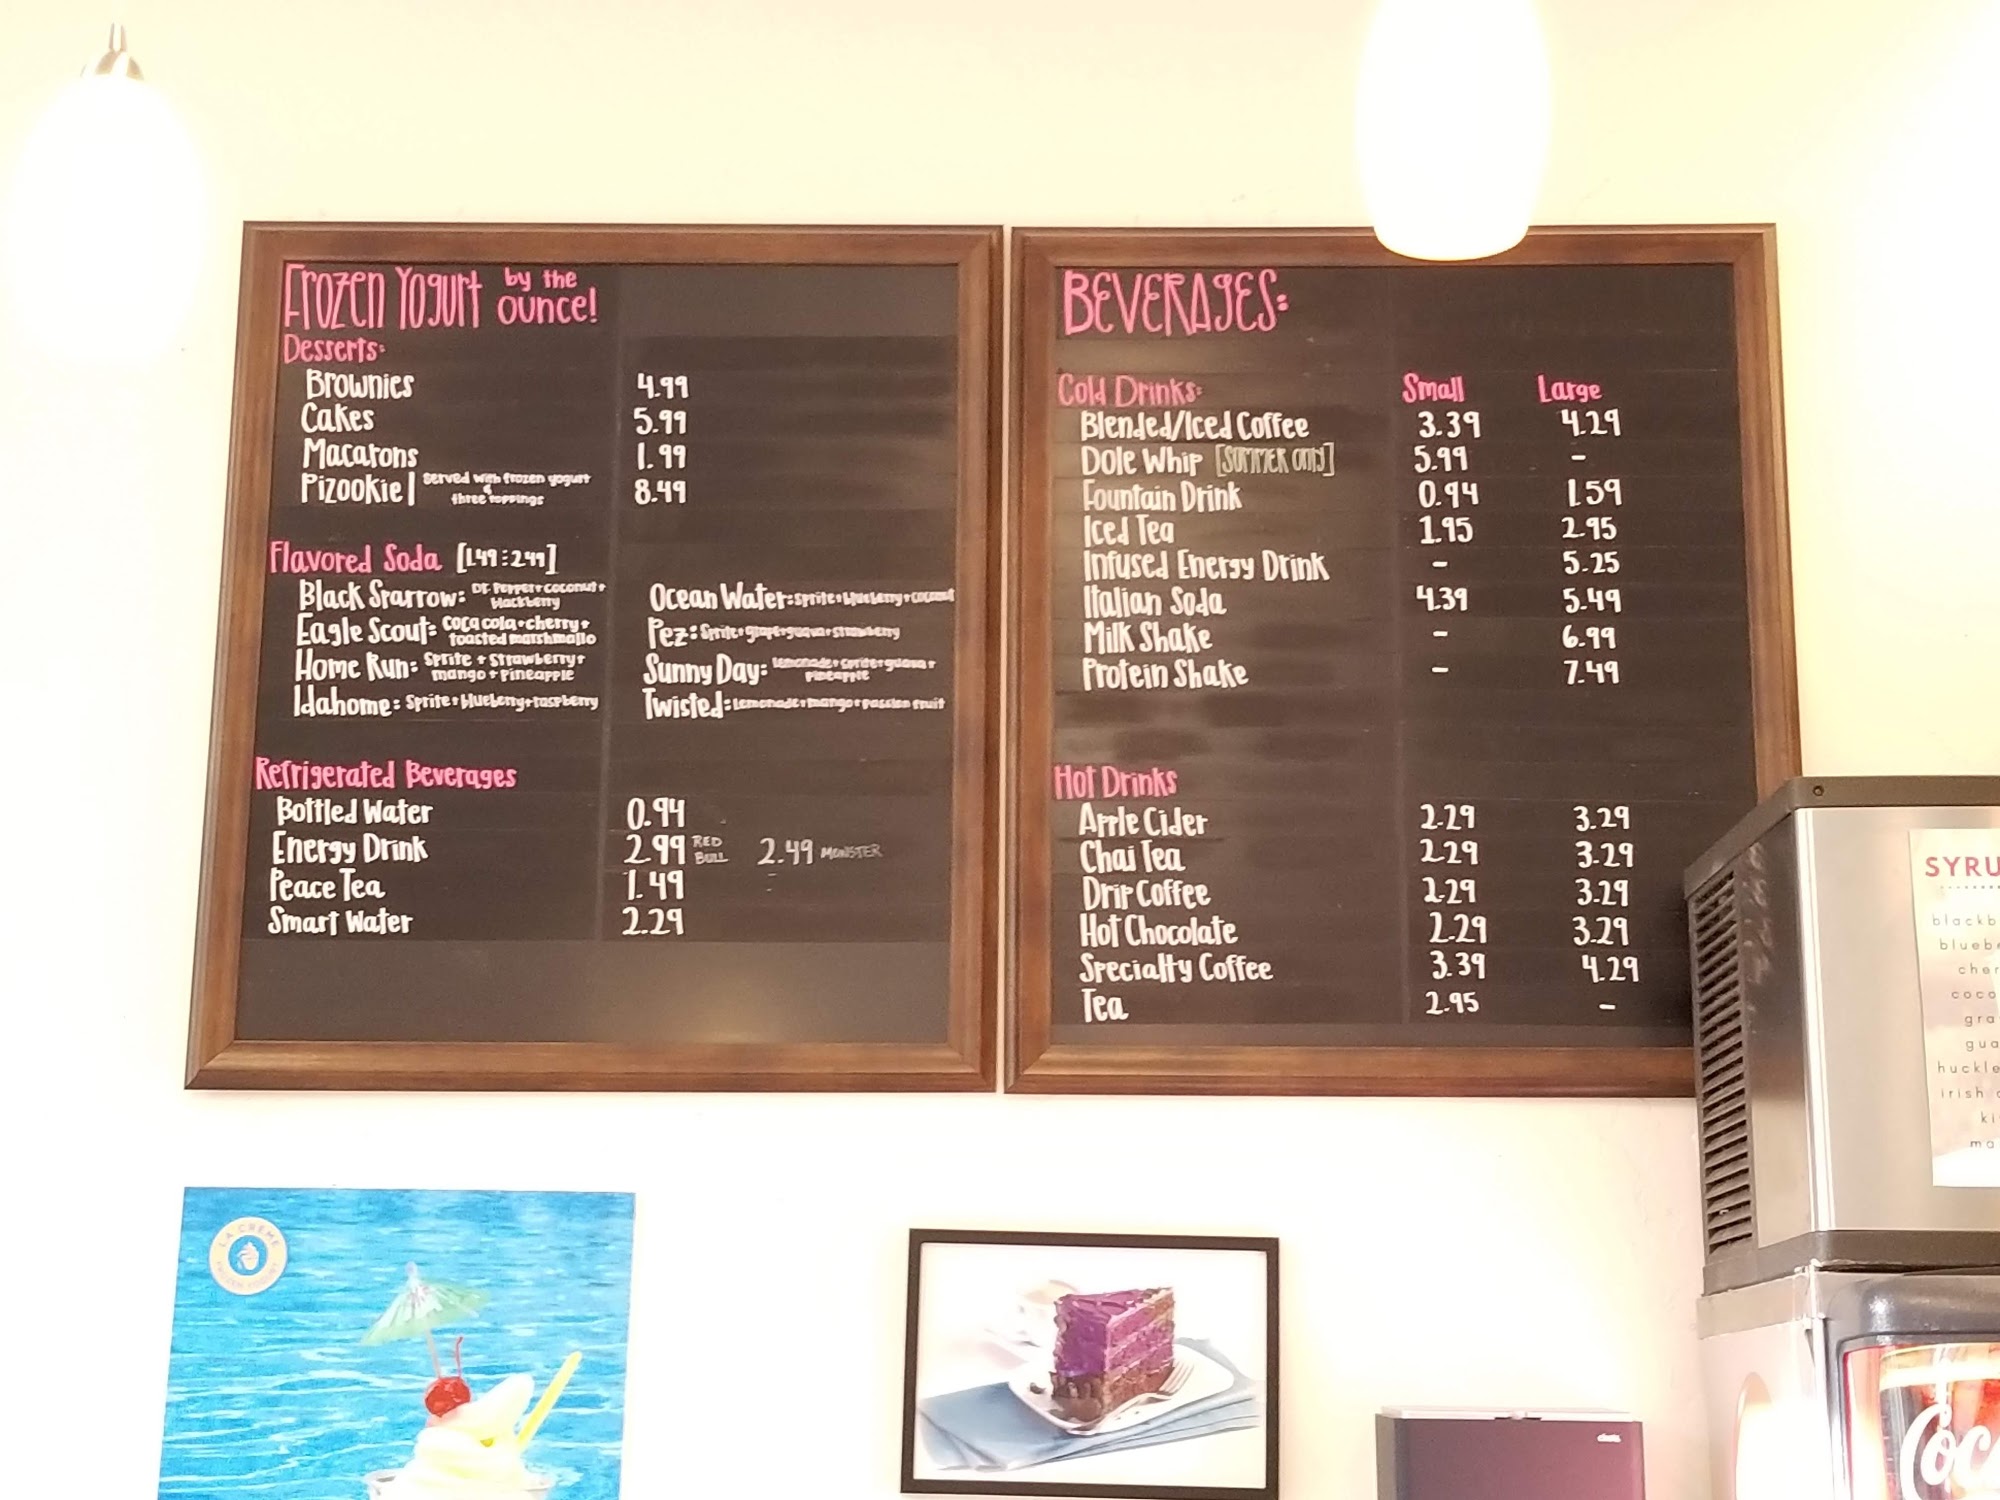 Frozen Yogurt by the ounce!
Desserts:
Brownies 4.99
Cakes 5.99
Macarons 1.99
Pizookie | served with frozen yogurt & three toppings 8.49
Flavored Soda [1.49 : 2.49]
Black Sparrow: Dr. Pepper + coconut +
blackberry
Eagle Scout: Coca cola + cherry +
toasted marshmallo
Home Run: Sprite + strawberry +
mango + pineapple
Idahome: Sprite + blueberry + raspberry
Ocean Water: Sprite + blueberry + coconut
Pez: Sprite + grape + guava + strawberry
Sunny Day: Lemonade + sprite + guava +
pineapple
Twisted: Lemonade + mango + passion fruit
Refrigerated Beverages
Bottled Water 0.94
Energy Drink 2.99 RED BULL 2.49 MONSTER
Peace Tea 1.49
Smart Water 2.29
BEVERAGES:
Cold Drinks: Small Large
Blended/Iced Coffee 3.39 4.29
Dole Whip [SUMMER ONLY] 5.99 -
Fountain Drink 0.94 1.59
Iced Tea 1.95 2.95
Infused Energy Drink - 5.25
Italian Soda 4.39 5.49
Milk Shake - 6.99
Protein Shake - 7.49
Hot Drinks
Apple Cider 2.29 3.29
Chai Tea 2.29 3.29
Drip Coffee 2.29 3.29
Hot Chocolate 2.29 3.29
Specialty Coffee 3.39 4.29
Tea 2.95 -
SYRU
blackb
bluebe
cher
coco
gra
gua
huckle
irish
ki
ma
LA CRÈME
FROZEN YOGURT
Coca